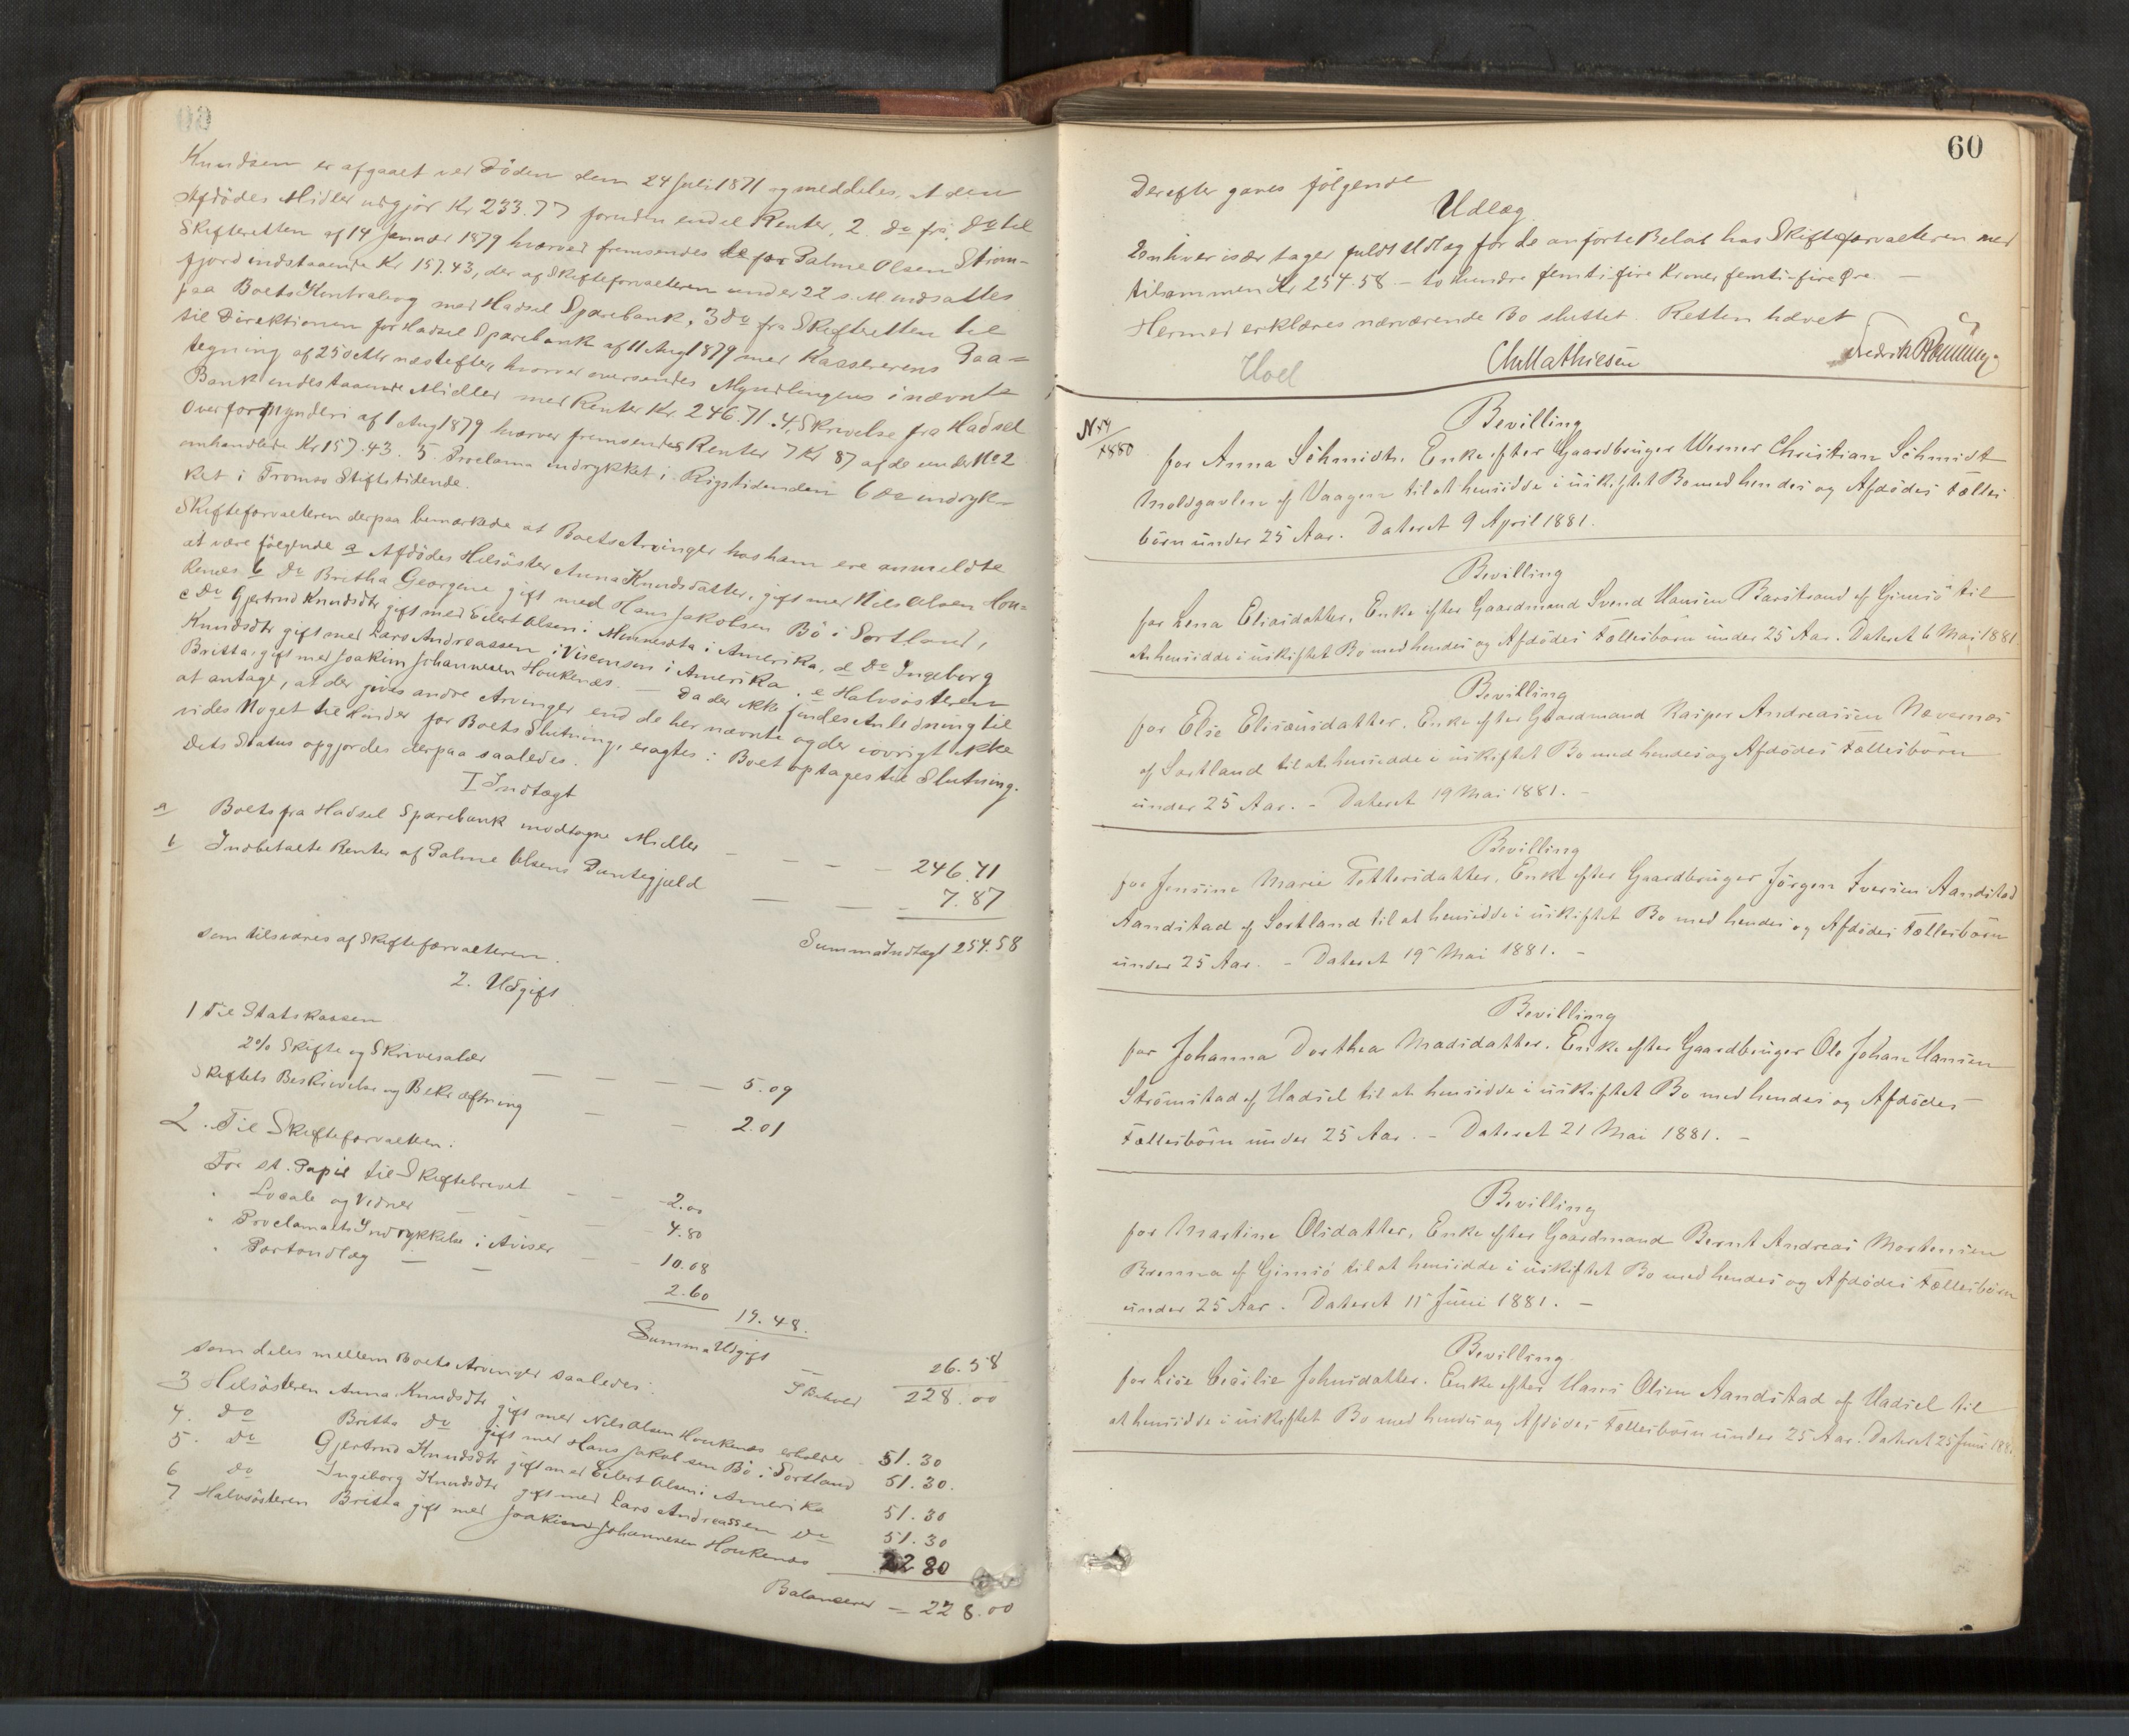 Knudsen er afgaaet ved Döden dem 24 Juli 1871 og meddeles, at den
Afdödes Midler udgjör Kr 233.77 foruden endel Renter, 2. Do fra Do til
Skifteretten af 14 Januar 1879 hvorved fremsendes de för Palme Olsen Ström-
fjord indstaaende Kr 157.43, der af Skifteforvalteren under 22 s. M. indsattes
paa Boets Kontrabog med Hadsel Sparebank, 3 Do fra Skifteretten til
til Direktionen for Hadsel Sparebank af 11 Augt 1879 med Kassererens Paa-
tegning af 25 Octbr næstefter, hvorved oversendes Myndlingens i nævnte
Bank indestaaende Midler med Renter Kr. 246.71. 4, Skrivelse fra Hadsel
Overformynderi af 1 Aug 1879 hvorved fremsendes Renter 7 Kr 87 af de under No 2
omhandlede Kr 157.43. 5. Proclama indrykket i Rigstidenden 6 Do indryk-
ket i Tromsö Stiftstidende.
Skifteforvalteren derpaa bemærkede at Boets Arvinger hos ham ere anmeldte
at være fölgende a Afdödes Helsöster Anna Knudsdatter, gift med Nils Olsen Hou-
kenes b Do Britha Georgine gift med Hans Jakobsen Bö i Sortland,
c Do Gjertrud Knudsdtr gift med Eilert Olsen i Minnesota i Amerika, d Do Ingeborg
Knudsdtr gift med Lars Andreassen i Visconsen i Amerika, e Halvsösteren
Britta, gift med Joakim Johannesen Houkenæs. — Da der ikke findes Anledning til
at antage, at der gives andre Arvinger end de her nævnte og der iövrigt ikke
vides Noget til Hinder for Boets Slutning, eragtes: Boet optages til Slutning.
Dets Status opgjordes derpaa saaledes.
I Indtægt
a Boets fra Hadsel Sparebank modtagne Midler — — — — 246.71
b Indbetalte Renter af Palme Olsens Pantegjæld — — — 7.87
Summa Indtægt 254.58
som tilsvares af Skifteforvalteren.
2. Udgift
1 Til Statskassen
2% Skifte og Skrivesalær — — — — 5.09
Skiftets Beskrivelse og Bekræftning — — 2.01
2. Til Skifteforvalteren:
For st. Papir til Skiftebrevet — — 2.00
" Locale og Vidner — — — 4.80
" Proclamaets Indrykkelse i Aviser — — 10.08
" Portoudlæg — — 2.60
19.48.
Summa Udgift — 26.58
I Behold 228.00
som deles mellem Boets Arvinger saaledes:
3 Helsösteren Anna Knudsdtr gift med Nils Olsen Houkenæs erholder 51.30
4. do Britta do gift med Hans Jakobsen Bö i Sortland 51.30.
5. do Gjertrud Knudsdtr gift med Eilert Olsen i Amerika 51.30
6 do Ingeborg Knudsdtr gift med Lars Andreassen do 51.30
7 Halvsösteren Britta gift med Joakim Johannesen Houkenæs 22 80
Balancerer — 228.00
60
Derefter gaves fölgende
Udlæg.
Enhver især tager fuldt Udlæg for de anförte Beløb hos Skifteforvalteren med
tilsammen Kr 254.58 — to hundre femti-fire Kroner femti-fire Øre —
Hermed erklæres nærværende Bo sluttet. Retten hævet
Hoel Chr Mathiesen Fredrik Rönning
N 54/1880
Bevilling
for Anna Schmidt. Enke efter Gaardbruger Werner Christian Schmidt
Moldgavlen af Vaagen til at hensidde i uskiftet Bo med hendes og Afdödes Fælles-
börn under 25 Aar. Dateret 9 April 1881.
Bevilling
for Lena Eliasdatter, Enke efter Gaardmand Svend Hansen Barstrand af Gimsö til
at hensidde i uskiftet Bo med hendes og Afdödes Fællesbörn under 25 Aar. Dateret 6 Mai 1881
Bevilling
for Elie Eliseusdatter, Enke efter Gaardmand Kasper Andreassen Nævernes
af Sortland til at hensidde i uskiftet Bo med hendes og Afdödes Fællesbörn
under 25 Aar. — Dateret 19 Mai 1881. —
Bevilling
for Jensine Marie Pettersdatter, Enke efter Gaardbruger Jörgen Iversen Aandstad
Aandstad af Sortland til at hensidde i uskiftet Bo med hendes og Afdödes Fællesbörn
under 25 Aar. — Dateret 19 Mai 1881. —
Bevilling
for Johanna Dorthea Madsdatter. Enke efter Gaardbruger Ole Johan Hansen
Strömstad af Hadsel til at hensidde i uskiftet Bo med hendes og Afdödes
Fællesbörn under 25 Aar. — Dateret 21 Mai 1881. —
Bevilling
for Martine Olsdatter, Enke efter Gaardmand Bernt Andreas Mortensen
Brenna af Gimsö til at hensidde i uskiftet Bo med hendes og Afdödes Fællesbörn
under 25 Aar. Dateret 11 Juni 1881. —
Bevilling
for Lise Cecilie Johnsdatter. Enke efter Hans Olsen Aandstad af Hadsel til
at hensidde i uskiftet Bo med hendes og Afdödes Fællesbörn under 25 Aar. Dateret 25 Juni 1881